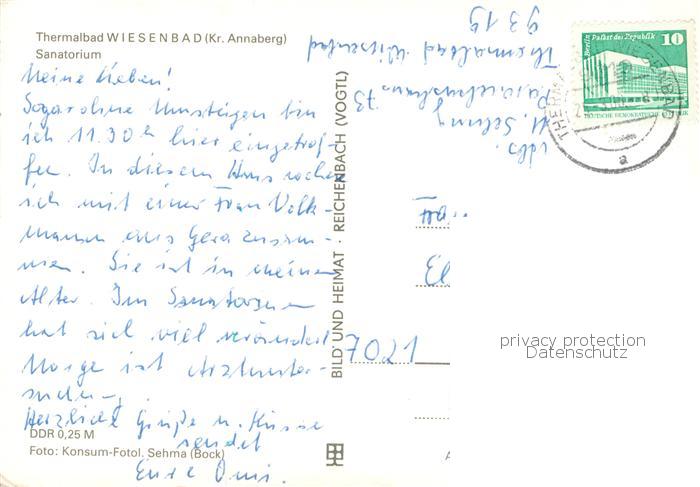 Thermalbad WIESENBAD (Kr. Annaberg)
Sanatorium
Meine Lieben!
Sogar ohne Umsteigen bin
ich 11.30 h hier eingetrof-
fen. In diesem Haus
ich mit einer Frau Volk-
mann aus Gera zusam-
men. Sie ist in meinem
Alter. Im Sanatorium
hat sich viel verändert
Morge ist Arztunter-
suchung.
Herzliche Grüße u. Küsse
sendet
Eure Omi.
DDR 0,25 M
Foto: Konsum-Fotol. Sehma (Bock)
BILD UND HEIMAT · REICHENBACH (VOGTL)
Abs.
73
Thermalbad Wiesenbad
9319
Berlin Palast der Republik
10
DEUTSCHE DEMOKRATISCHE
THERMALBAD WIESENBAD
a
7021
privacy protection
Datenschutz